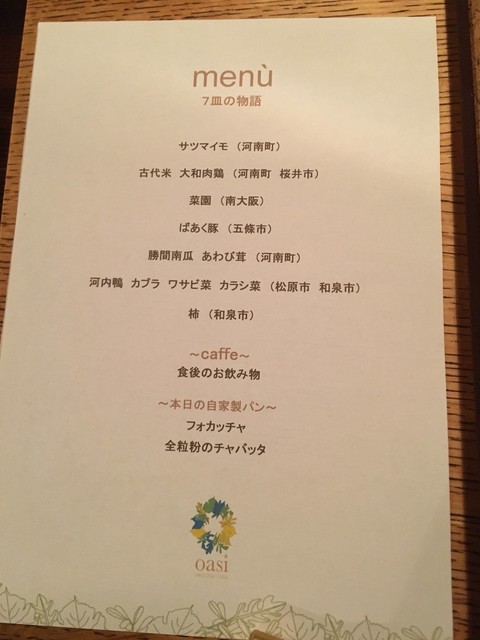 menù
7皿の物語
サツマイモ （河南町）
古代米 大和肉鶏 （河南町 桜井市）
菜園 （南大阪）
ばあく豚 （五條市）
勝間南瓜 あわび茸 （河南町）
河内鴨 カブラ ワサビ菜 カラシ菜 （松原市 和泉市）
柿 （和泉市）
～caffe～
食後のお飲み物
～本日の自家製パン～
フォカッチャ
全粒粉のチャバッタ
oasi